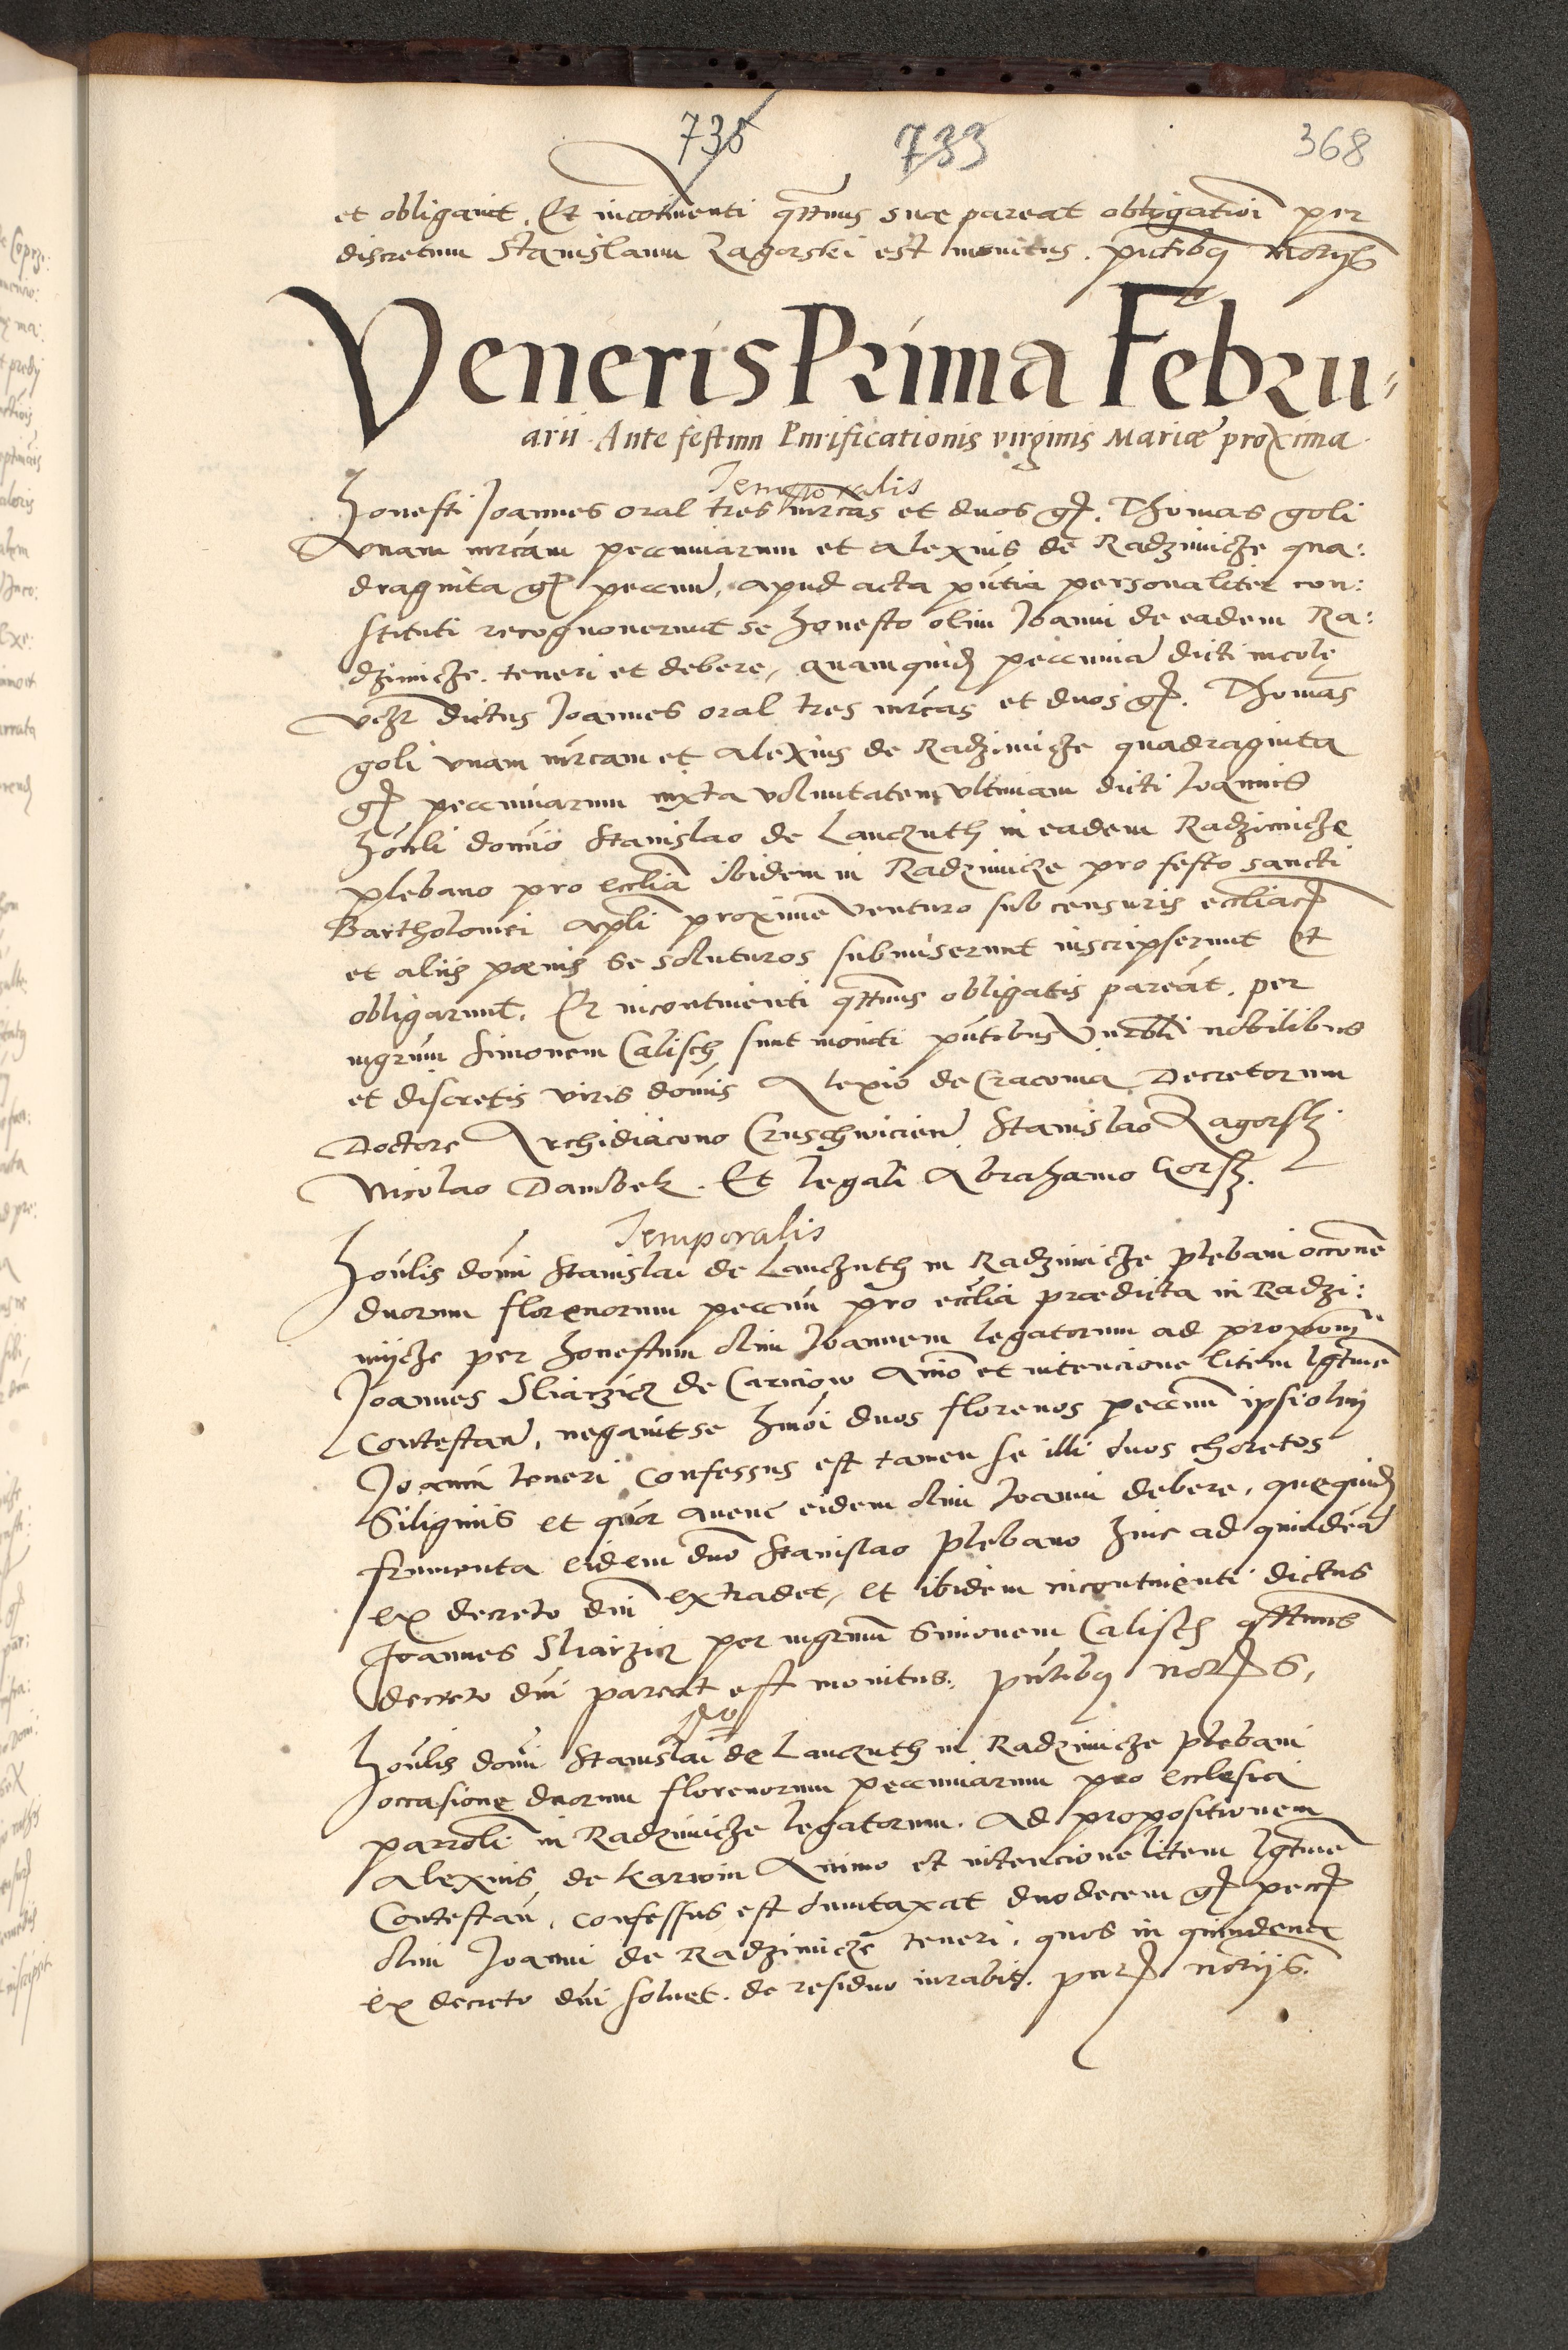 735 733 368
et obligavit. Et incontinenti qttenus suae pareat obligationi per
discretum Stanislaum Zagorski est monitus. pntibq notrijs
Veneris Prima Febru=
arii Ante festum Purificationis virginis Mariae proxima
Temporalis
Honesti Joannes oral tres mrcas et duos gr. Thomas goli
vnam mrcam pecuniarum et Alexius de Radzimicze qua:
draginta gr pecun. apud acta pntia personaliter con:
stituti recognouerunt se honesto olim Joanni de eadem Ra:
dzimicze teneri et debere, quamquid pecunia dicti incole
vz dictus Joannes oral tres mrcas et duos gr. Thomas
goli vnam mrcam et Alexius de Radzimicze quadraginta
gr pecuniarum iuxta voluntatem vltimam dicti Joannis
honli domino Stanislao de Lanczuth in eadem Radzimicze
plebano pro ecclia ibidem in Radzimicze pro festo sancti
Bartholomei apli proxime venturo sub censuris eccliac
et alijs poenis se soluturos submiserunt inscripserunt et
obligarunt. Et incontinenti qttenus obligatis pareat. per
mgrum Simonem Calisch sunt moniti pntibus vnrbli nobilibus
et discretis viris domis Alexio de Cracouia Decretorum
Doctore Archidiacono Cruschwicien Stanislao Zagorsk
Nicolao Dambek. Et legali Abrahamo Gorsk.
Temporalis
Honlis domi Stanislai de Lanczuth in Radzimicze plebani occone
duorum florenorum pecun pro ecclia praedicta in Radzi:
mijcze per honestum olim Joannem legatorum ad propom
Joannes Sliarzicz de Carniow Animo et intencione litem lgttime
Contestan, negavit se hmoi duos florenos pecun ipsi olim
Joanni teneri Confessus est tamen se illi duos choretos
Siliginis et quor auene eidem olim Joanni debere, quequid
frumenta eidem dno Stanislao plebano hinc ad quindena
ex decreto dni extradet, et ibidem incontinenti dictus
Joannes Sliarzicz per mgrum Simonem Calisch qttenus
decreto dni pareat est monitus. pntibq notr s,
Honlis domi Stanislai de Lanczuth in Radzimicze plebani
occasione duorum florenorum pecuniarum pro ecclesia
parroli in Radzimicze legatorum. Ad propositionem
Alexius de Karwin Animo et intencione litem lgttime
Contestan, confessus est dumtaxat duodecem gr pecc
olim Joanni de Radzimicze teneri, quos in quindena
ex decreto dni soluet. de residuo iurabit. pntr notrijs.